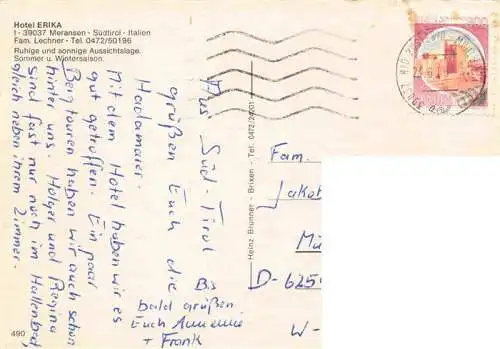 Hotel ERIKA
I - 39037 Meransen - Südtirol - Italien
Fam. Lechner - Tel. 0472/50196
Ruhige und sonnige Aussichtslage.
Sommer u. Wintersaison.
Aus Süd-Tirol
grüßen Euch die
Hadamaier.
Mit dem Hotel haben wir es
gut getroffen. Ein paar
Bergtouren haben wir auch schon
hinter uns. Holger und Regina
sind fast nur noch im Hallenbad,
gleich neben ihrem Zimmer.
Bis
bald grüßen
Euch Annemie
+ Frank
490
Heinz Brunner - Brixen - Tel. 0472/24201
Fam.
Jakob
Mü
D-625
W-